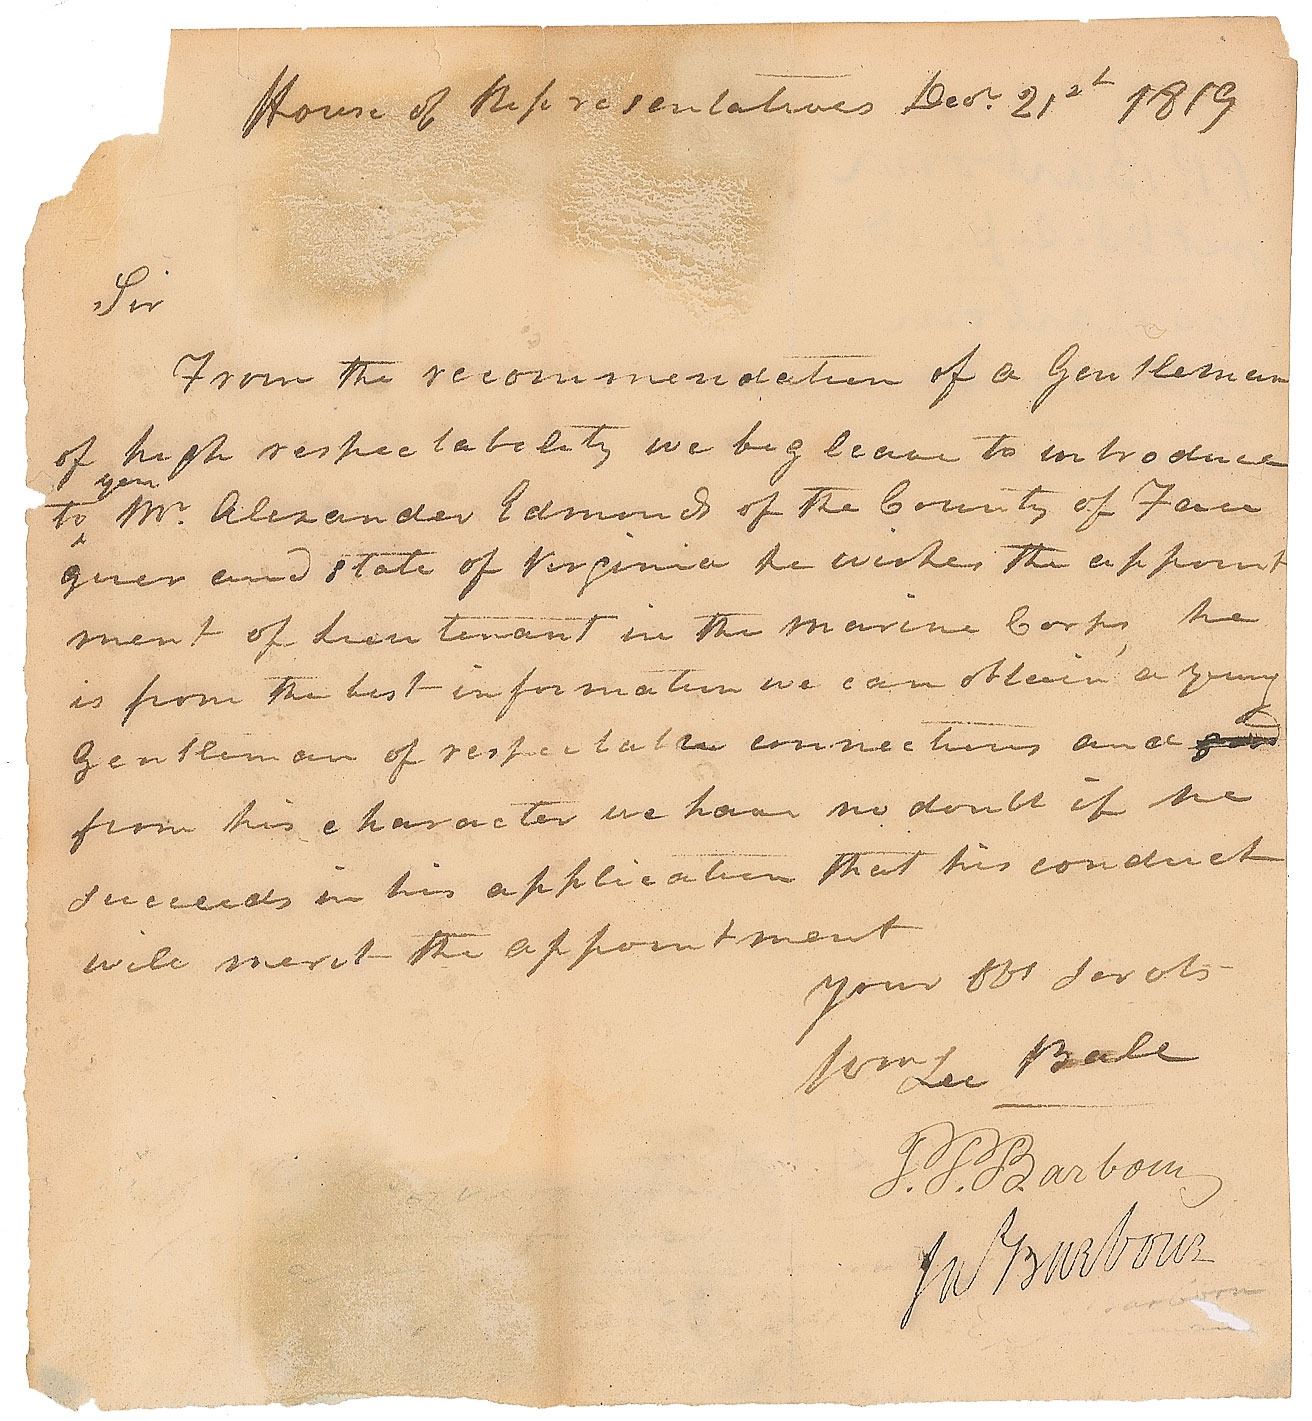 House of Representatives Decr. 21st 1819
Sir
From the recommendation of a Gentleman
of high respectability we beg leave to introduce
you
to Mr. Alexander Edmonds of the County of Fau
quier and state of Virginia he wishes the appoint
ment of Lieutenant in the Marine Corps, he
is from the best information we can obtain a young
Gentleman of respectable connections and
from his character we have no doubt if he
succeeds in his application that his conduct
will merit the appointment
your Obt Servts
Wm Lee Ball
P. P. Barbour
Js Barbour